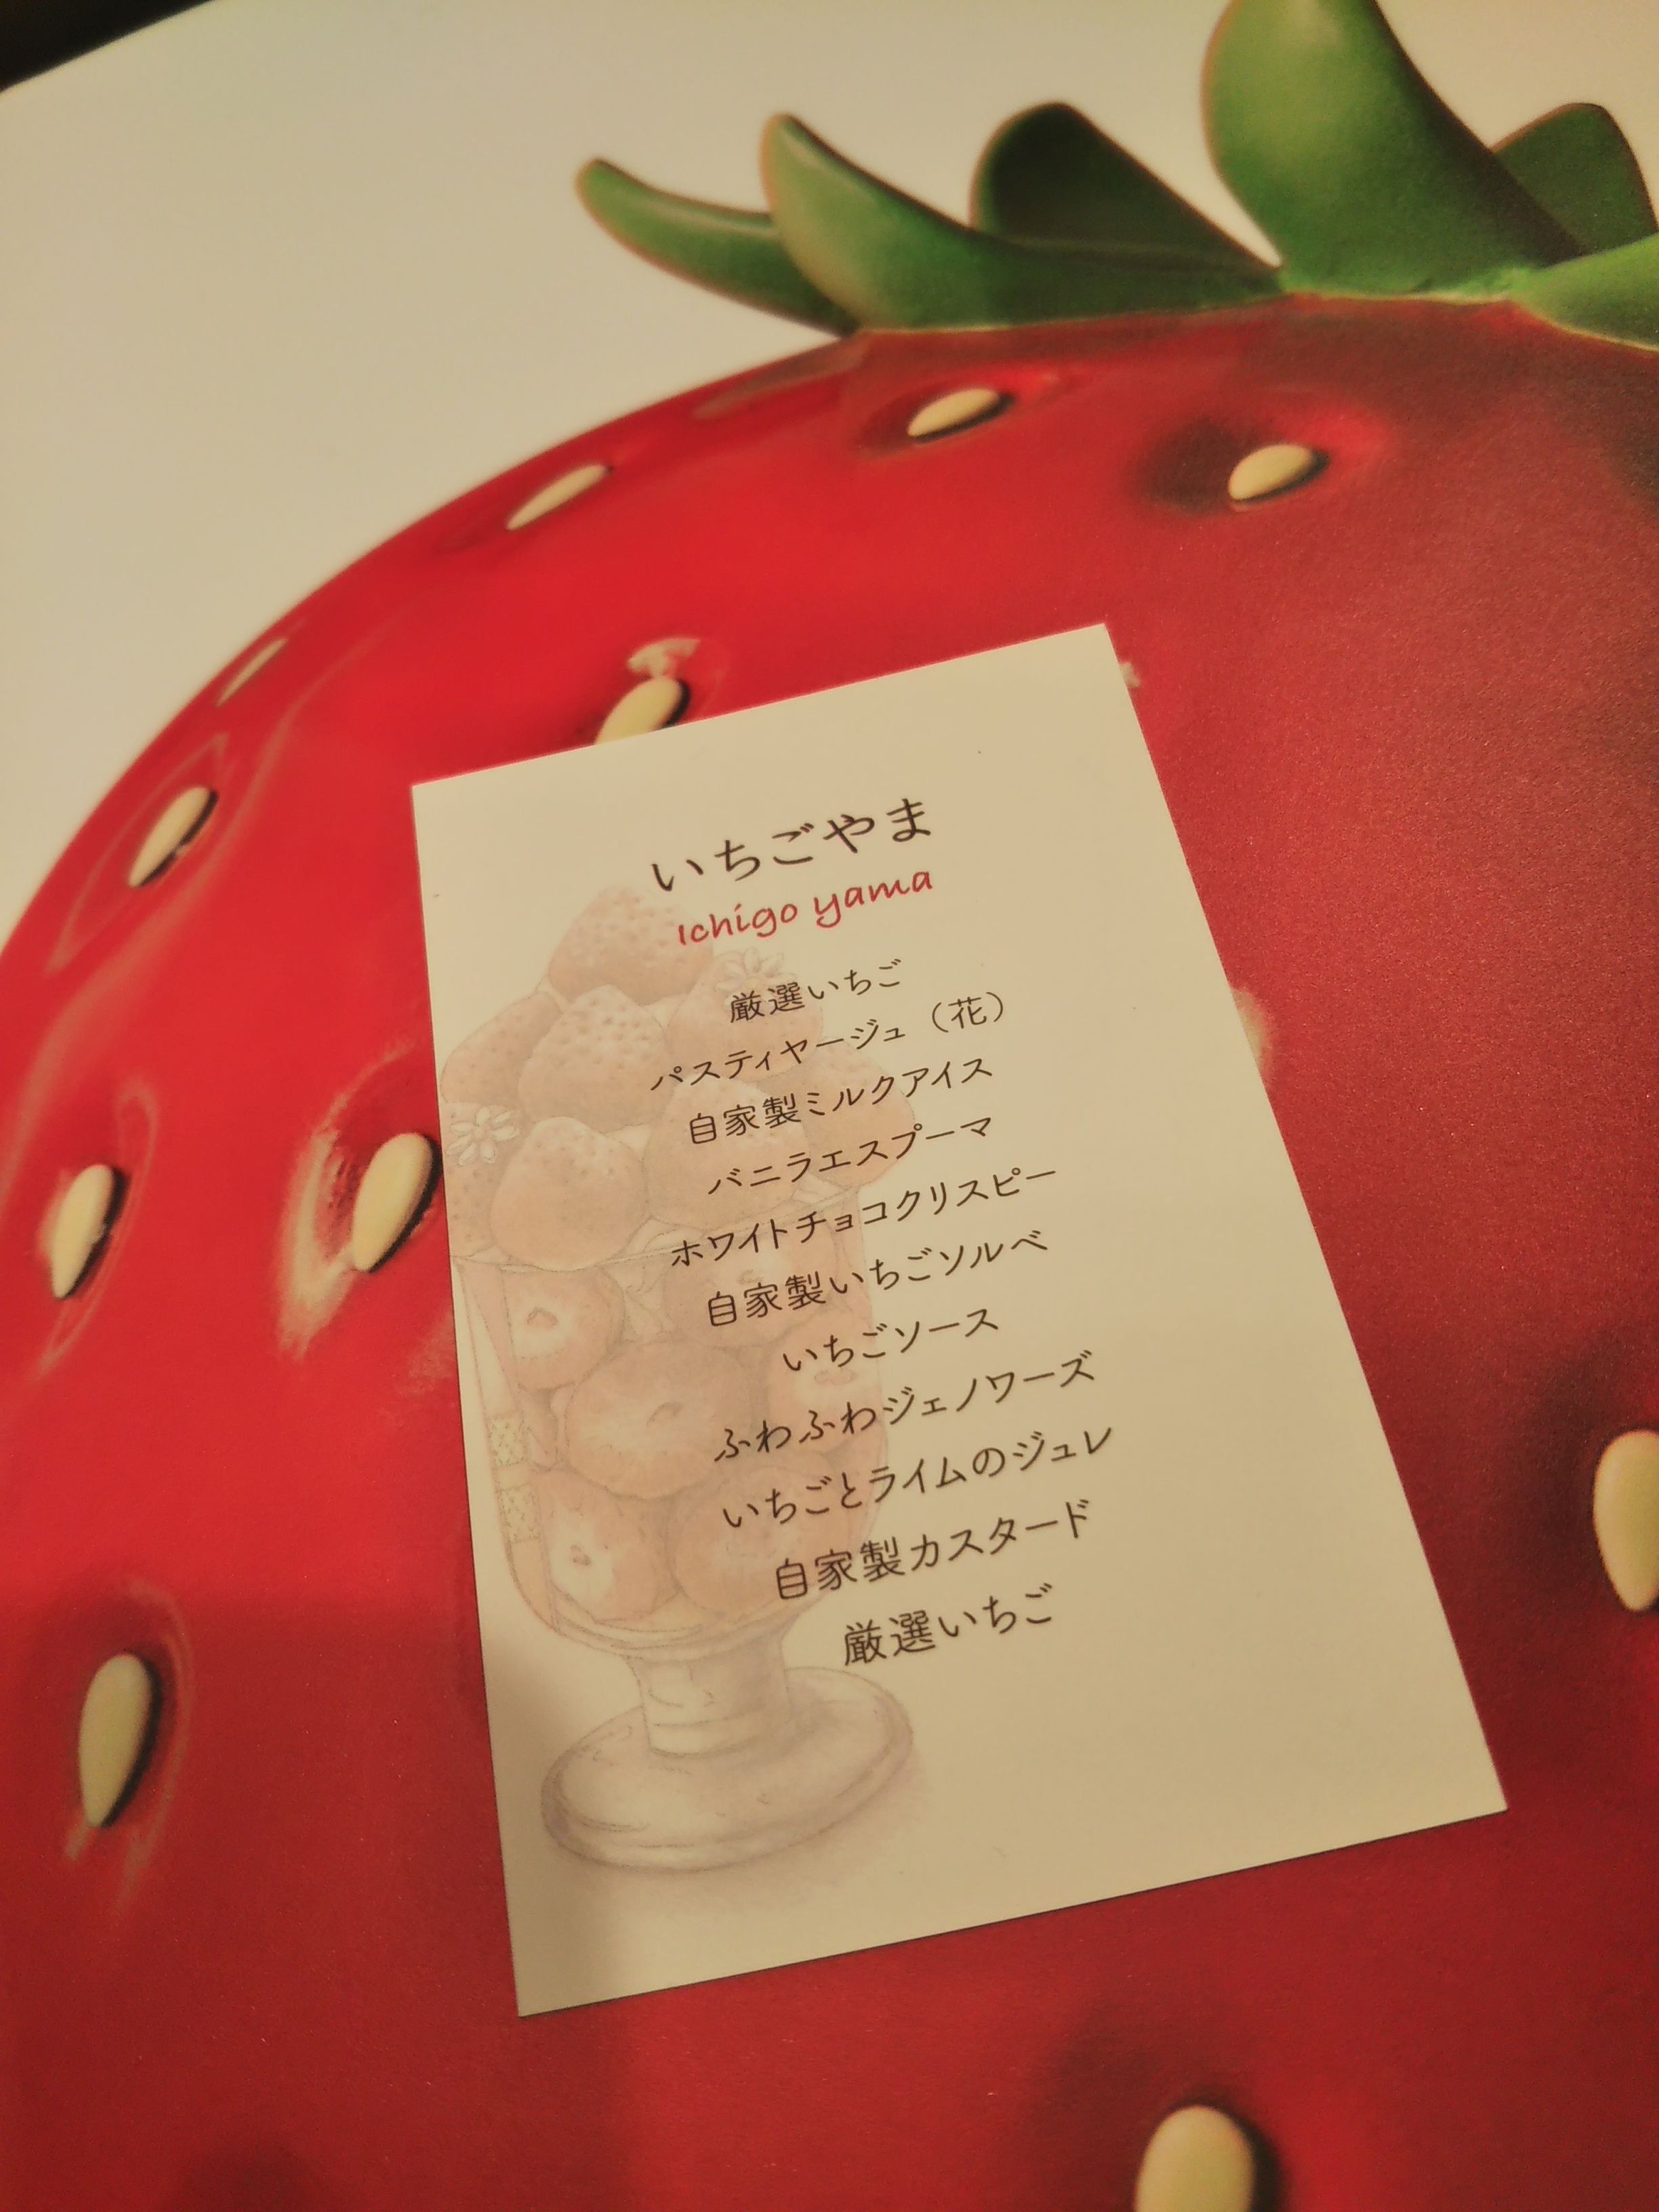 いちごやま
Ichigo yama
厳選いちご
パスティヤージュ（花）
自家製ミルクアイス
バニラエスプーマ
ホワイトチョコクリスピー
自家製いちごソルベ
いちごソース
ふわふわジェノワーズ
いちごとライムのジュレ
自家製カスタード
厳選いちご